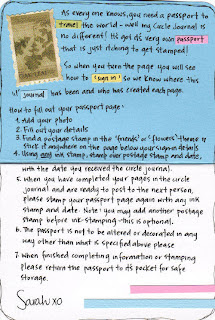 As every one knows, you need a passport to
travel the world - well my Circle Journal is
no different! It's got it's very own passport
that is just itching to get stamped!
So when you turn the page you will see
how to 'sign in' so we know where this
lil' journal has been and who has created each page.
How to fill out your passport page:
1. Add your photo
2. Fill out your details
3. Find a postage stamp in the 'friends' or 'flowers' theme &
stick it anywhere on the page below your sign-in details
4. Using any ink stamp, stamp over postage stamp and date,
with the date you received the circle journal.
5. when you have completed your pages in the circle
journal and are ready to post to the next person,
please stamp your passport page again with any ink
stamp and date. Note: you may add another postage
stamp before ink-stamping - this is optional.
6. The passport is not to be altered or decorated in any
way other than what is specified above please
7. when finished completing information or stamping
please return the passport to its pocket for safe
storage.
Sarah xo